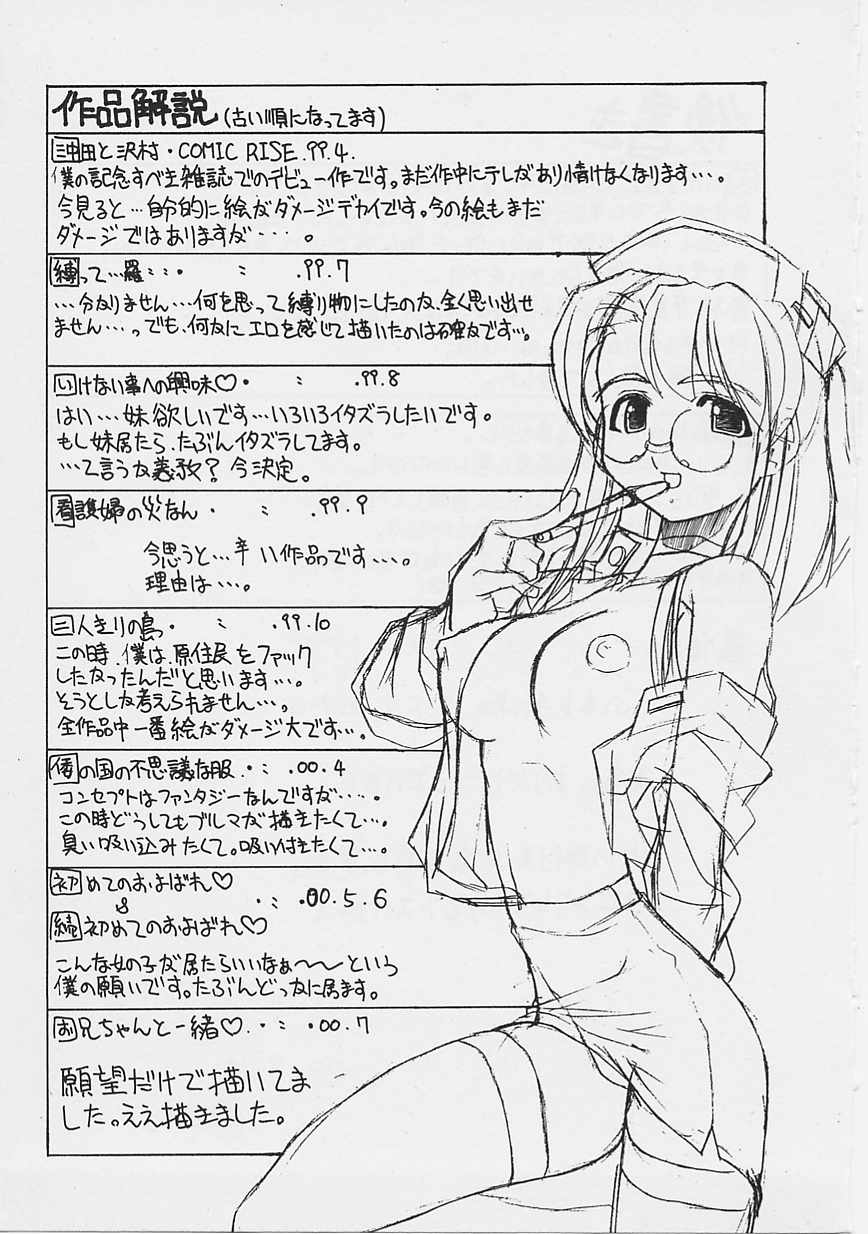 作品解説(古い順になってます)
沖田と沢村・COMIC RISE.99.4.
僕の記念すべき雑誌でのデビュー作です。まだ作中にテレがあり情けなくなります…。
今見ると…自分的に絵がダメージデカイです。今の絵もまだ
ダメージではありますが….。
縛って…羅…・ : .99.7
…分かりません…何を思って縛り物にしたのか、全く思い出せ
ません…。っでも、何かにエロを感じて描いたのは確かです…。
いけない事への興味♡・ : .99.8
はい…妹欲しいです…いろいろイタズラしたいです。
もし妹居たら、たぶんイタズラしてます。
…て言うか義務?今決定。
看護婦の災なん・ : .99.9
今思うと…辛い作品です…。
理由は…。
三人きりの島・ : .99.10
この時、僕は、原住民をファック
したかったんだと思います…。
そうとしか考えられません…。
全作品中一番絵がダメージ大です…。
倭の国の不思議な服.・: .00.4
コンセプトはファンタジーなんですが….。
この時どうしてもブルマが描きたくて…。
臭い吸い込みたくて。吸い付きたくて…。
初めてのおよばれ♡
& .・: .00.5.6
続初めてのおよばれ♡
こんな女の子が居たらいいなぁ〜〜という
僕の願いです。たぶんどっかに居ます。
お兄ちゃんと一緒♡.・: .00.7
願望だけで描いてま
した。ええ描きました。